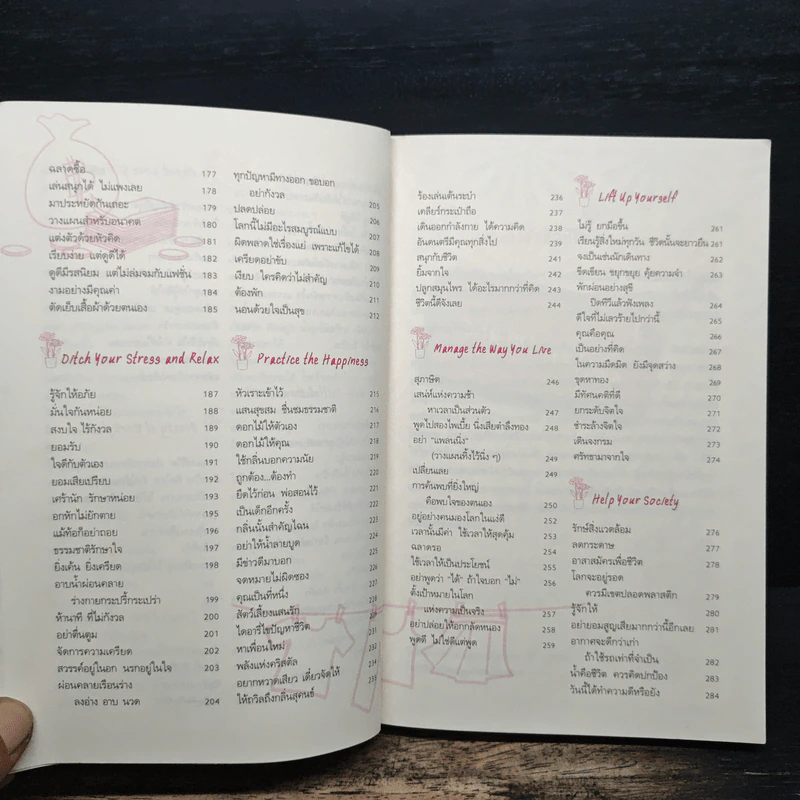 ฉลาดซื้อ 177
เล่นสนุกได้ ไม่แพงเลย 178
มาประหยัดกันเถอะ 179
วางแผนสำหรับอนาคต 180
แต่งตัวด้วยหัวคิด 181
เรียบง่าย แต่ดูดีได้ 182
ดูดีมีรสนิยม แต่ไม่ล่มจมกับแฟชั่น 183
งามอย่างมีคุณค่า 184
ตัดเย็บเสื้อผ้าด้วยตนเอง 185
Ditch Your Stress and Relax
รู้จักให้อภัย 187
มั่นใจกันหน่อย 188
สงบใจ ไร้กังวล 189
ยอมรับ 190
ใจดีกับตัวเอง 191
ยอมเสียเปรียบ 192
เศร้านัก รักษาหน่อย 193
อกหักไม่ยักตาย 195
แม้ท้อก็อย่าถอย 196
ธรรมชาติรักษาใจ 197
ยิ่งเค้น ยิ่งเครียด 198
อาบน้ำผ่อนคลาย
ร่างกายกระปรี้กระเปร่า 199
ห้านาที ที่ไม่กังวล 200
อย่าตื่นตูม 201
จัดการความเครียด 202
สวรรค์อยู่ในอก นรกอยู่ในใจ 203
ผ่อนคลายเรือนร่าง
ลงอ่าง อาบ นวด 204
ทุกปัญหามีทางออก ขอบอก
อย่ากังวล 205
ปลดปล่อย 206
โลกนี้ไม่มีอะไรสมบูรณ์แบบ 207
ผิดพลาดใช่เรื่องแย่ เพราะแก้ไขได้ 208
เครียดอย่าขับ 209
เงียบ ใครคิดว่าไม่สำคัญ 210
ต้องพัก 211
นอนด้วยใจเป็นสุข 212
Practice the Happiness
หัวเราะเข้าไว้ 215
แสนสุขสม ชื่นชมธรรมชาติ 216
ดอกไม้ให้ตัวเอง 217
ดอกไม้ให้คุณ 218
ใช้กลิ่นบอกความนัย 219
ถูกต้อง...ต้องทำ 220
ยืดไว้ก่อน พ่อสอนไว้ 221
เป็นเด็กอีกครั้ง 222
กลิ่นนั้นสำคัญไฉน 223
อย่าให้น้ำลายบูด 224
มีข่าวดีมาบอก 225
จดหมายไม่ผิดซอง 226
คุณเป็นที่หนึ่ง
สัตว์เลี้ยงแสนรัก
ไดอารี่ไขปัญหาชีวิต
หาเพื่อนใหม่
พลังแห่งคริสตัล
อยากหวาดเสียว เดี๋ยวจัดให้
ให้ถวิลถึงกลิ่นสุคนธ์ 235
ร้องเล่นเต้นระบำ 236
เคลียร์กระเป๋าถือ 237
เดินออกกำลังกาย ได้ความคิด 238
อันดนตรีมีคุณทุกสิ่งไป 239
สนุกกับชีวิต 240
ยิ้มจากใจ 242
ปลูกสมุนไพร ได้อะไรมากกว่าที่คิด 243
ชีวิตนี้ดีจังเลย 244
Manage the Way You Live
สุภาษิต 246
เสน่ห์แห่งความช้า
หาเวลาเป็นส่วนตัว 247
พูดไปสองไพเบี้ย นิ่งเสียตำลึงทอง 248
อย่า "แพลนนิ่ง"
(วางแผนทิ้งไว้นิ่ง ๆ) 249
เปลี่ยนเลย 249
การค้นพบที่ยิ่งใหญ่
คือพบใจของตนเอง 250
อยู่อย่างคนมองโลกในแง่ดี 252
เวลานั้นมีค่า ใช้เวลาให้สุดคุ้ม 253
ฉลาดรอ 254
ใช้เวลาให้เป็นประโยชน์ 255
อย่าพูดว่า "ได้" ถ้าใจบอก "ไม่" 256
ตั้งเป้าหมายในโลก
แห่งความเป็นจริง 257
อย่าปล่อยให้อกกลัดหนอง 258
พูดดี ไม่ใช่ดีแต่พูด 259
Lift Up Yourself
ไม่รู้ ยกมือขึ้น 261
เรียนรู้สิ่งใหม่ทุกวัน ชีวิตนั้นจะยาวยืน 262
จงเป็นเช่นนักเดินทาง 262
ขีดเขียน ขยุกขยุย คุ้ยความจำ 263
พักผ่อนอย่างสุขี
ปิดทีวีแล้วฟังเพลง 264
ดีใจที่ไม่เลวร้ายไปกว่านี้ 265
คุณคือคุณ 266
เป็นอย่างที่คิด 267
ในความมืดมิด ยังมีจุดสว่าง 268
ขุดหาทอง 269
มีทัศนคติที่ดี 270
ยกระดับจิตใจ 271
ชำระล้างจิตใจ 272
เดินจงกรม 273
ศรัทธามาจากใจ 274
Help Your Society
รักษ์สิ่งแวดล้อม 276
ลดกระดาษ 277
อาสาสมัครเพื่อชีวิต 278
โลกจะอยู่รอด
ควรมีเขตปลอดพลาสติก 279
รู้จักให้ 280
อย่ายอมสูญเสียมากกว่านี้อีกเลย 281
อากาศจะดีกว่าเก่า
ถ้าใช้รถเท่าที่จำเป็น 282
น้ำคือชีวิต ควรคิดปกป้อง 283
วันนี้ได้ทำความดีหรือยัง 284